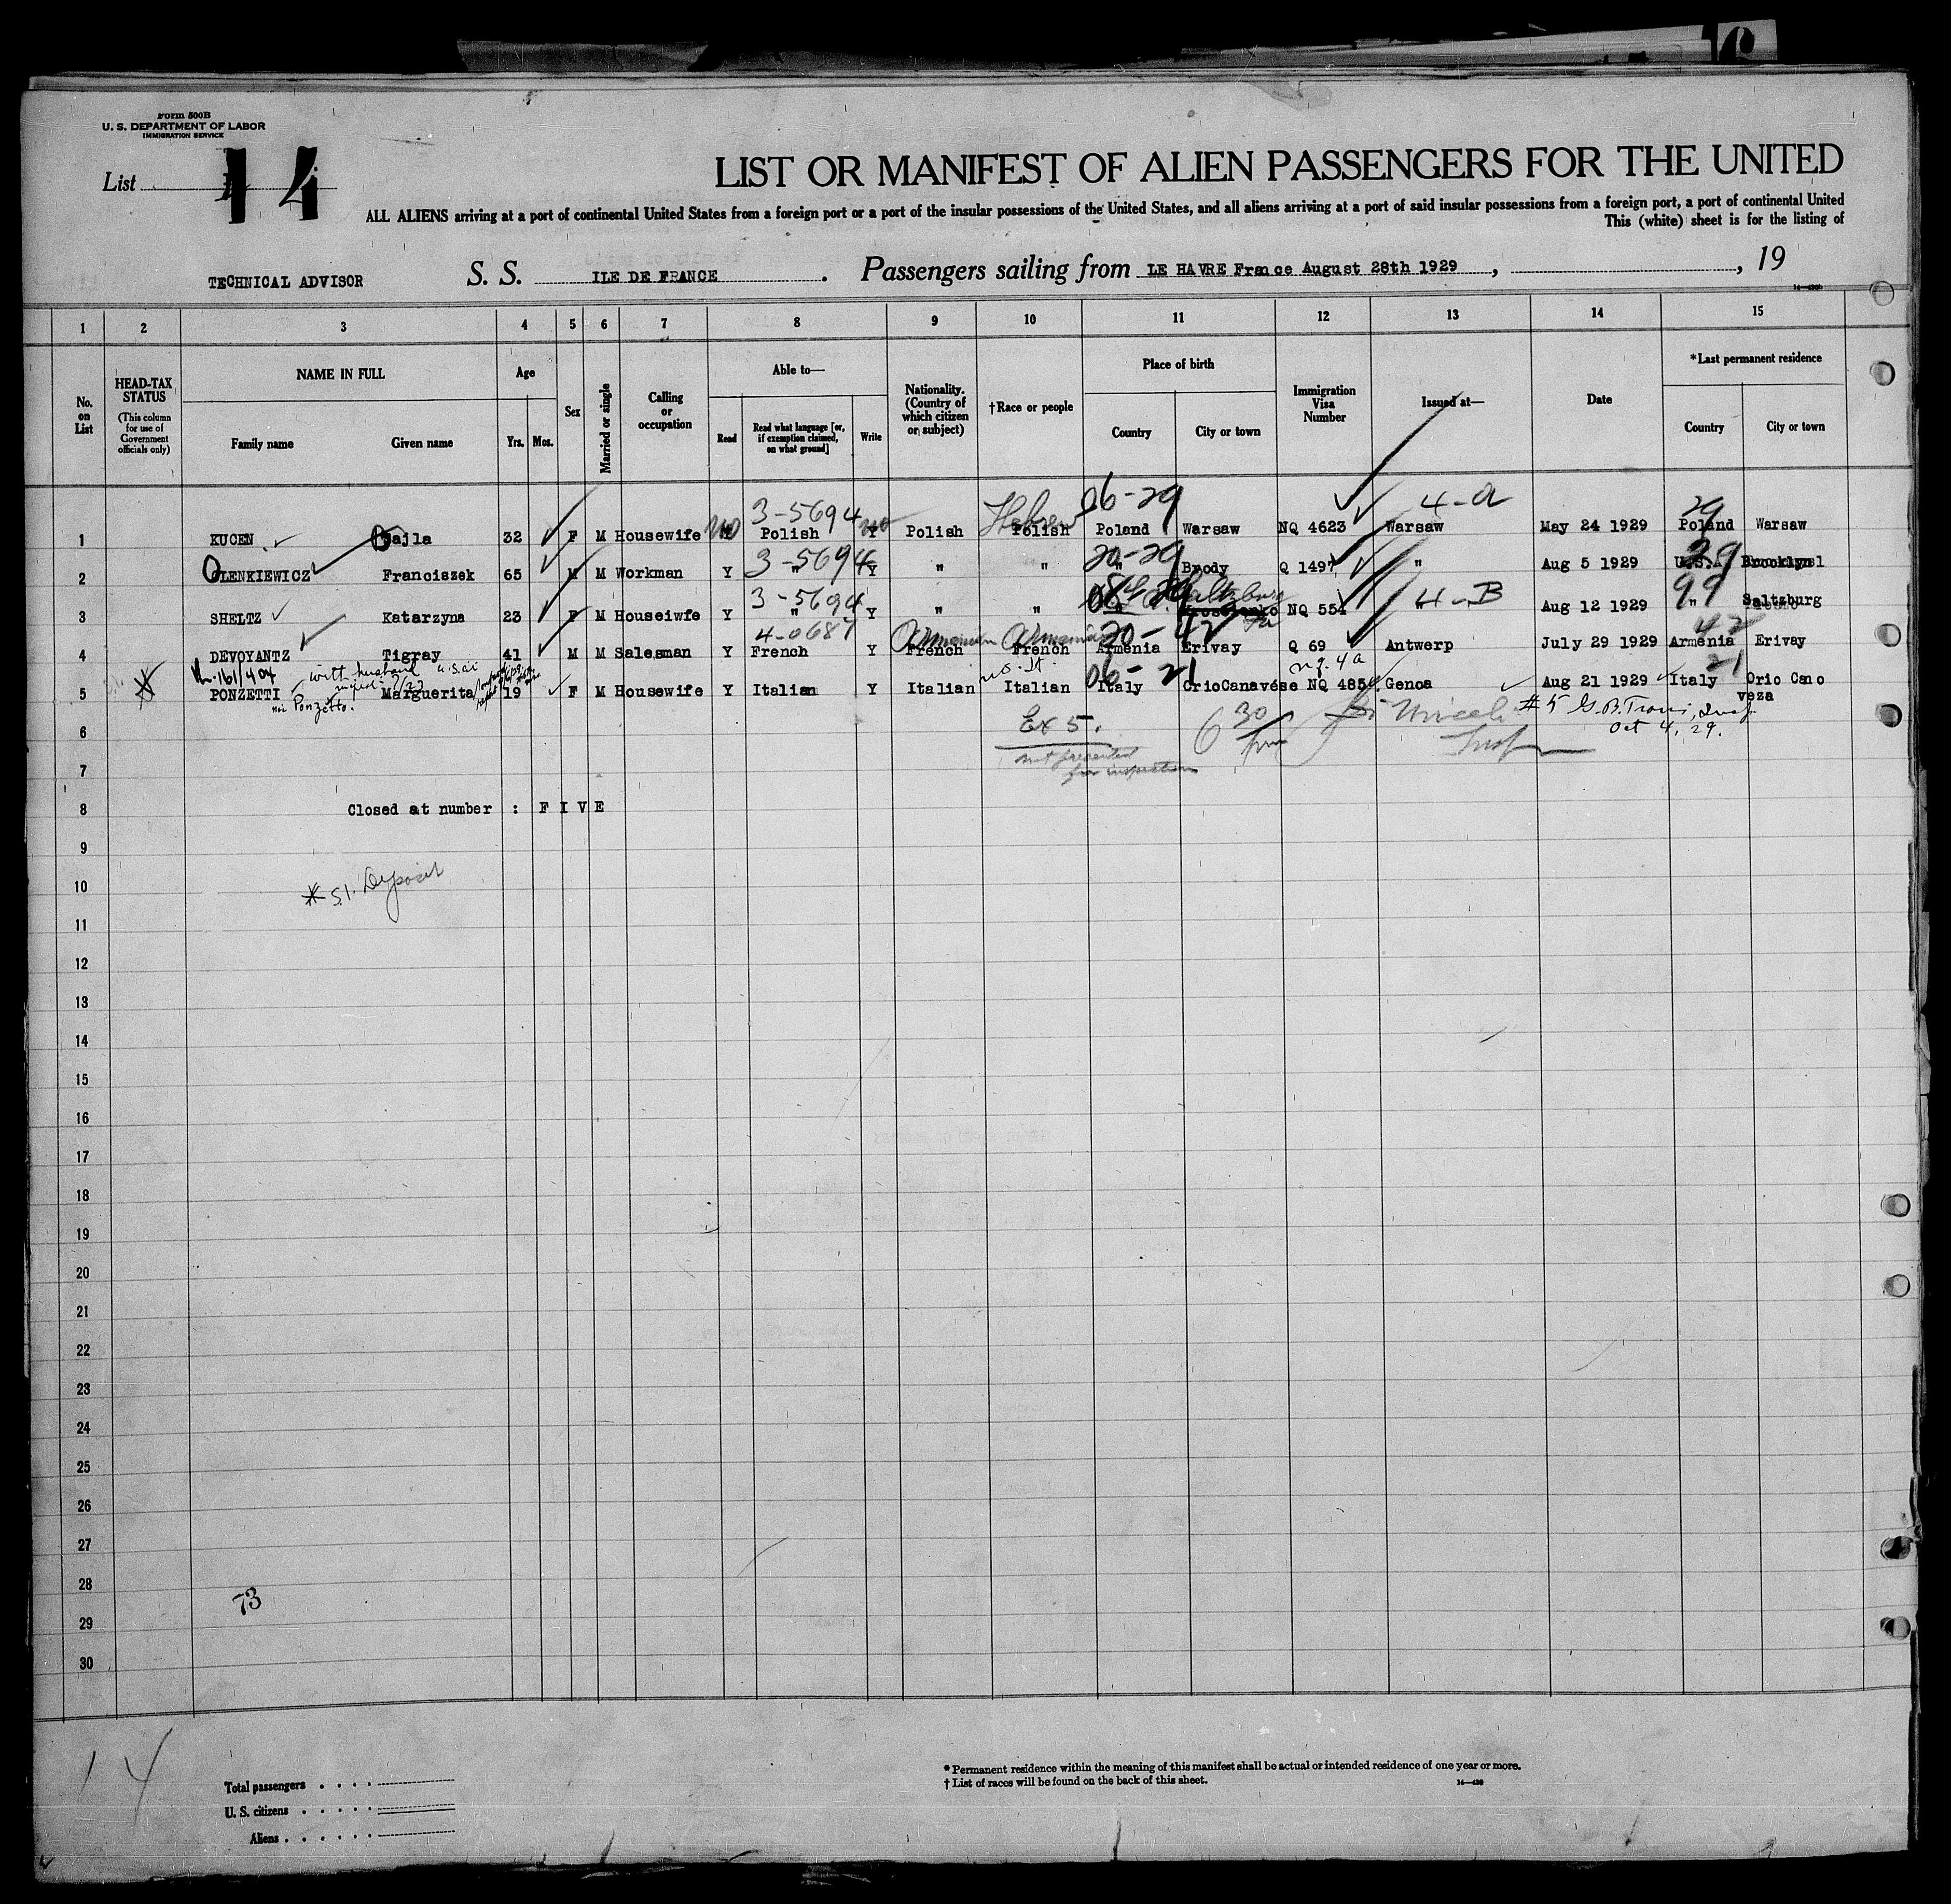 Form 500B
U. S. DEPARTMENT OF LABOR
IMMIGRATION SERVICE
List 14
LIST OR MANIFEST OF ALIEN PASSENGERS FOR THE UNITED
ALL ALIENS arriving at a port of continental United States from a foreign port or a port of the insular possessions of the United States, and all aliens arriving at a port of said insular possessions from a foreign port, a port of continental United
This (white) sheet is for the listing of
TECHNICAL ADVISOR S. S. ILE DE FRANCE. Passengers sailing from LE HAVRE France August 28th 1929, , 19
1 2 3 4 5 6 7 8 9 10 11 12 13 14 15
No. on List
HEAD-TAX STATUS (This column for use of Government officials only)
NAME IN FULL
Family name Given name
Age
Yrs. Mos.
Sex
Married or single
Calling or occupation
Able to—
Read Read what language [or, if exemption claimed, on what ground] Write
Nationality. (Country of which citizen or subject)
†Race or people
Place of birth
Country City or town
Immigration Visa Number
Issued at—
Date
*Last permanent residence
Country City or town
3-5694 Hebrew 06-29 4-a 29
1 KUCEN Gajla 32 F M Housewife no Polish Y no Polish Polish Poland Warsaw NQ 4623 Warsaw May 24 1929 Poland Warsaw
3-5694 20-29 29
2 OLENKIEWICZ Franciszek 65 M M Workman Y " Y " " " Brody Q 1497 " Aug 5 1929 U.S.A. Brooklyn
3-5694 4-B 99
3 SHELTZ Katarzyna 23 F M Houseiwfe Y " Y " " NQ 554 Aug 12 1929 " Saltzburg
4-0687 Armenian Armenian 20-42 42
4 DEVOYANTZ Tigray 41 M M Salesman Y French Y French French Armenia Erivay Q 69 Antwerp July 29 1929 Armenia Erivay
161/404 with husband no. It. 06-21 n.q. 4a 21
5 PONZETTI Marguerita 19 F M Housewife Y Italian Y Italian Italian Italy CrioCanavése NQ 4854 Genoa Aug 21 1929 Italy Orio Cano
veza
Ponzetto.
#5 G.B. Insp.
Oct 4, 29.
6 Ex 5. 6 30 pm Insp
not presented
for inspection
7
8 Closed at number : F I V E
9
10 * S.I. Deposit
11
12
13
14
15
16
17
18
19
20
21
22
23
24
25
26
27
28
73
29
30
14
Total passengers
U. S. citizens
Aliens
* Permanent residence within the meaning of this manifest shall be actual or intended residence of one year or more.
† List of races will be found on the back of this sheet.